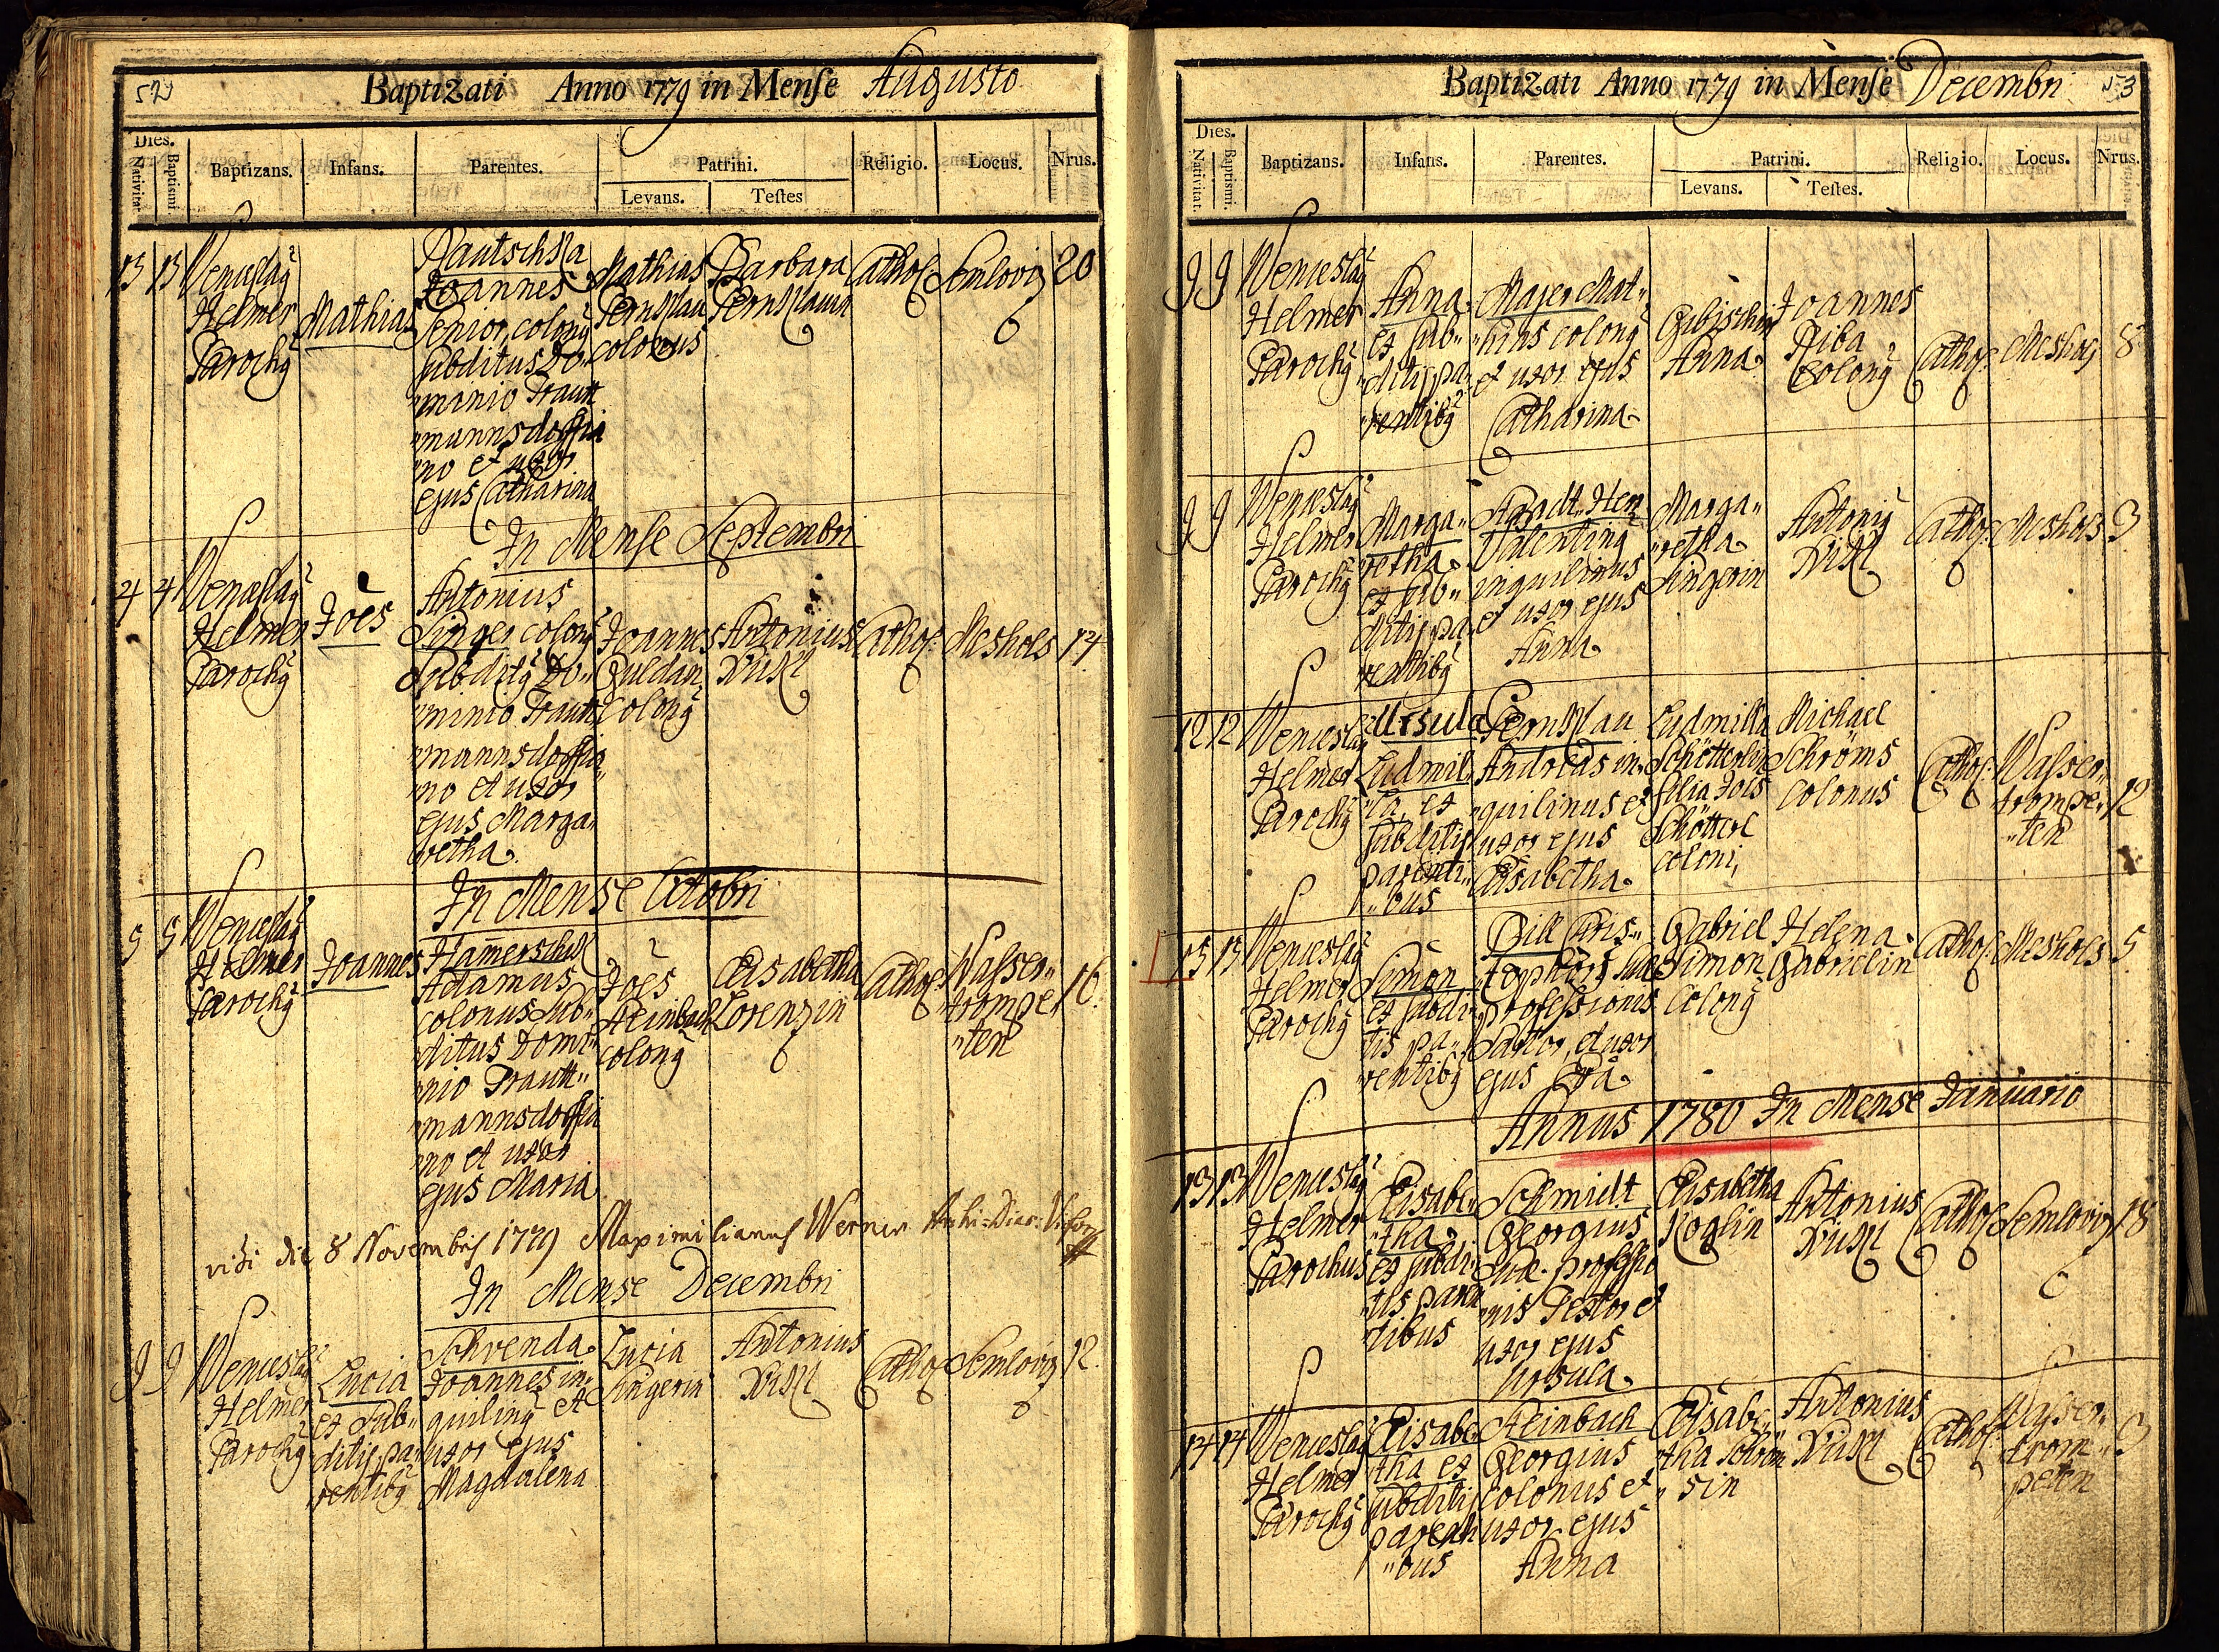 52
Baptizati Anno 1779 in Mense Augusto
Dies.
Nativitat.
Baptismi.
Baptizans.
Infans.
Parentes.
Patrini.
Levans.
Testes
Religio.
Locus.
Nrus.
13 13
Wenceslaȳ
Helmer
Parochȳ
Mathias
Joannes
Senior, colonȳ
subditus Do„
„minio Trautt
„mannsdorffia
„no et uxor
ejus Catharina
Mathias
colonus
Barbara
Cathol
Semloviz
20
In Mense Septembri
4 4
Wenceslaȳ
Helmer
Parochȳ
Joes
Antonius
Singer colonȳ
Subditȳ Do„
„minio Trautt
„mannsdorffia„
„no et uxor
ejus Marga„
retha
Joannes
Guldan
Colonȳ
Antonius
Cathol:
Mesholz
14
In Mense Octobri
9 9
Wenceslaȳ
Helmer
Parochȳ
Joannes
Hamerschik
Adamus
colonus Sub„
ditus Domi„
„nio Trautt„
„mannsdorffia
„no et uxor
ejus Maria
Joes
Steinbach
colonȳ
Elisabetha
Lorenzin
Cathol
Wasser„
trompe„
„ten
16
vidi die 8 Novembris 1779 Maximilianus Werner Archi-Diac:
In Mense Decembri
9 9
Wenceslaȳ
Helmer
Parochȳ
Lucia
et Sub„
ditis pa„
rentibȳ
Schrenda
Joannes in„
quilinȳ et
uxor ejus
Magdalena
Lucia
Singerin
Antonius
Cathol
Semloviz
12.
53
Baptizati Anno 1779 in Mense Decembri
Dies.
Nativitat.
Baptismi.
Baptizans.
Infans.
Parentes.
Patrini.
Levans.
Testes.
Religio.
Locus.
Nrus.
9 9
Wenceslaȳ
Helmer
Parochȳ
Anna
et sub„
„ditis pa„
„rentibȳ
Majer Mat„
„hias colonȳ
et uxor ejus
Catharina
Anna
Joannes
Riba
Colonȳ
Cathol:
Mesholz
8
9 9
Wenceslaȳ
Helmer
Parochȳ
Marga„
retha
et sub„
ditis pa„
rentibȳ
Valentinȳ
inquilinus
et uxor ejus
Anna
Marga„
„retha
Singerin
Antoniȳ
Cathol:
Mesholz
3
12 12
Wenceslaȳ
Helmer
Parochȳ
Ursula
Ludmil„
„la, et
subditis
parenti„
„bus
Andreas in„
„quilinus et
uxor ejus
Elisabetha
Ludmilla
Schötterlin
filia Jois
Schötterl
coloni,
Michael
Schröms
colonus
Cathol:
Wasser„
trompe„
„ten
12
15 15
Wenceslaȳ
Helmer
Parochȳ
Simon
et subdi„
tis pa„
„rentibȳ
Bill Cris„
„tophorȳ suae
professionis
Sartor, et uxor
ejus Eva
Gabriel
Simon
Colonȳ
Helena
Gabrielin
Cathol:
Mesholz
5
Annus 1780 In Mense Januario
13 13
Wenceslaȳ
Helmer
Parochus
Elisabe„
„tha
et subdi„
„tis paren
tibus
Schmidt
Georgius
suae professio
„nis Textor et
uxor ejus
Ursula
Elisabetha
Koglin
Antonius
Cathol
Semloviz
18
14 14
Wenceslaȳ
Helmer
Parochȳ
Elisabe„
tha et
subditis
parenti
„bus
Steinbach
Georgius
Colonus et
uxor ejus
Anna
Elisabe„
tha Schröm
„sin
Antonius
Cathol:
Wasser„
trom„
peten
9